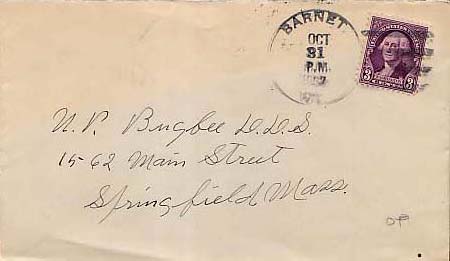 BARNET
OCT
31
P.M.
3 3
N. P. Bugbee D.D.S.
15-62 Main Street
Springfield Mass.
OP